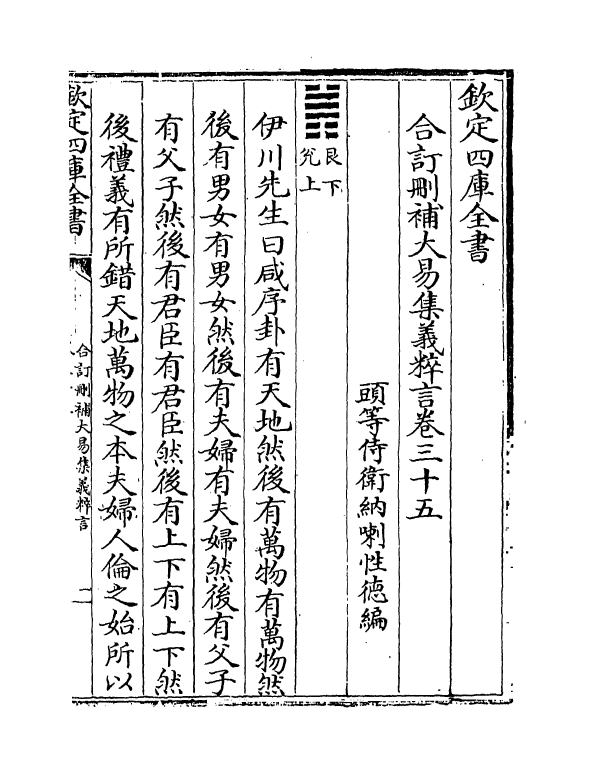 欽定四庫全書
合訂刪補大易集義粹言卷三十五
頭等侍衛納喇性德編
艮下
兌上
伊川先生曰咸序卦有天地然後有萬物有萬物然
後有男女有男女然後有夫婦有夫婦然後有父子
有父子然後有君臣有君臣然後有上下有上下然
後禮義有所錯天地萬物之本夫婦人倫之始所以
欽定四庫全書
合訂刪補大易集義粹言
一